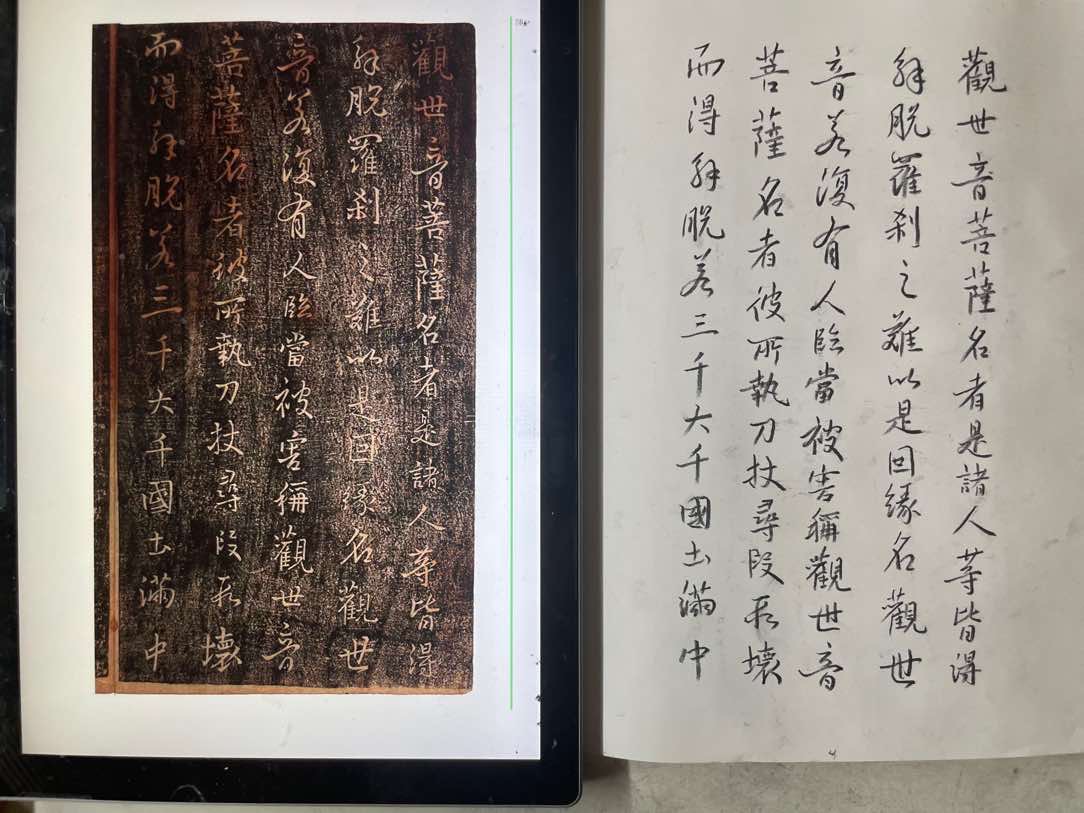 觀世音菩薩名者是諸人等皆得
解脫羅刹之難以是因緣名觀世
音若復有人臨當被害稱觀世音
菩薩名者彼所執刀杖尋段段壞
而得解脫若三千大千國土滿中
觀世音菩薩名者是諸人等皆得
解脫羅刹之難以是因緣名觀世
音若復有人臨當被害稱觀世音
菩薩名者彼所執刀杖尋段段壞
而得解脫若三千大千國土滿中